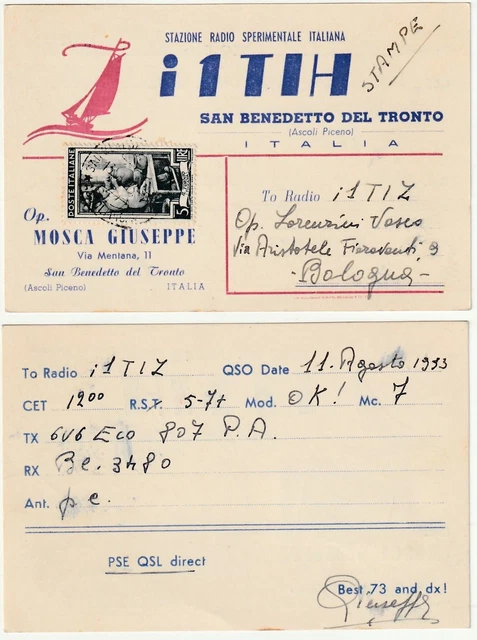 STAZIONE RADIO SPERIMENTALE ITALIANA
i1TIH
STAMPE
SAN BENEDETTO DEL TRONTO
(Ascoli Piceno)
ITALIA
POSTE ITALIANE
LIRE 5
To Radio i1TIZ
Op. Lorenzini Vasco
Via Aristotele Fioravanti, 9
- Bologna -
Op.
MOSCA GIUSEPPE
Via Mentana, 11
San Benedetto del Tronto
(Ascoli Piceno) ITALIA
To Radio i1TIZ QSO Date 11. Agosto 1953
CET 1200 R.S.T. 5-7+ Mod. OK! Mc. 7
TX 6V6 Eco 807 P.A.
RX Bc. 3480
Ant. p e.
PSE QSL direct
Best 73 and dx!
Giuseppe